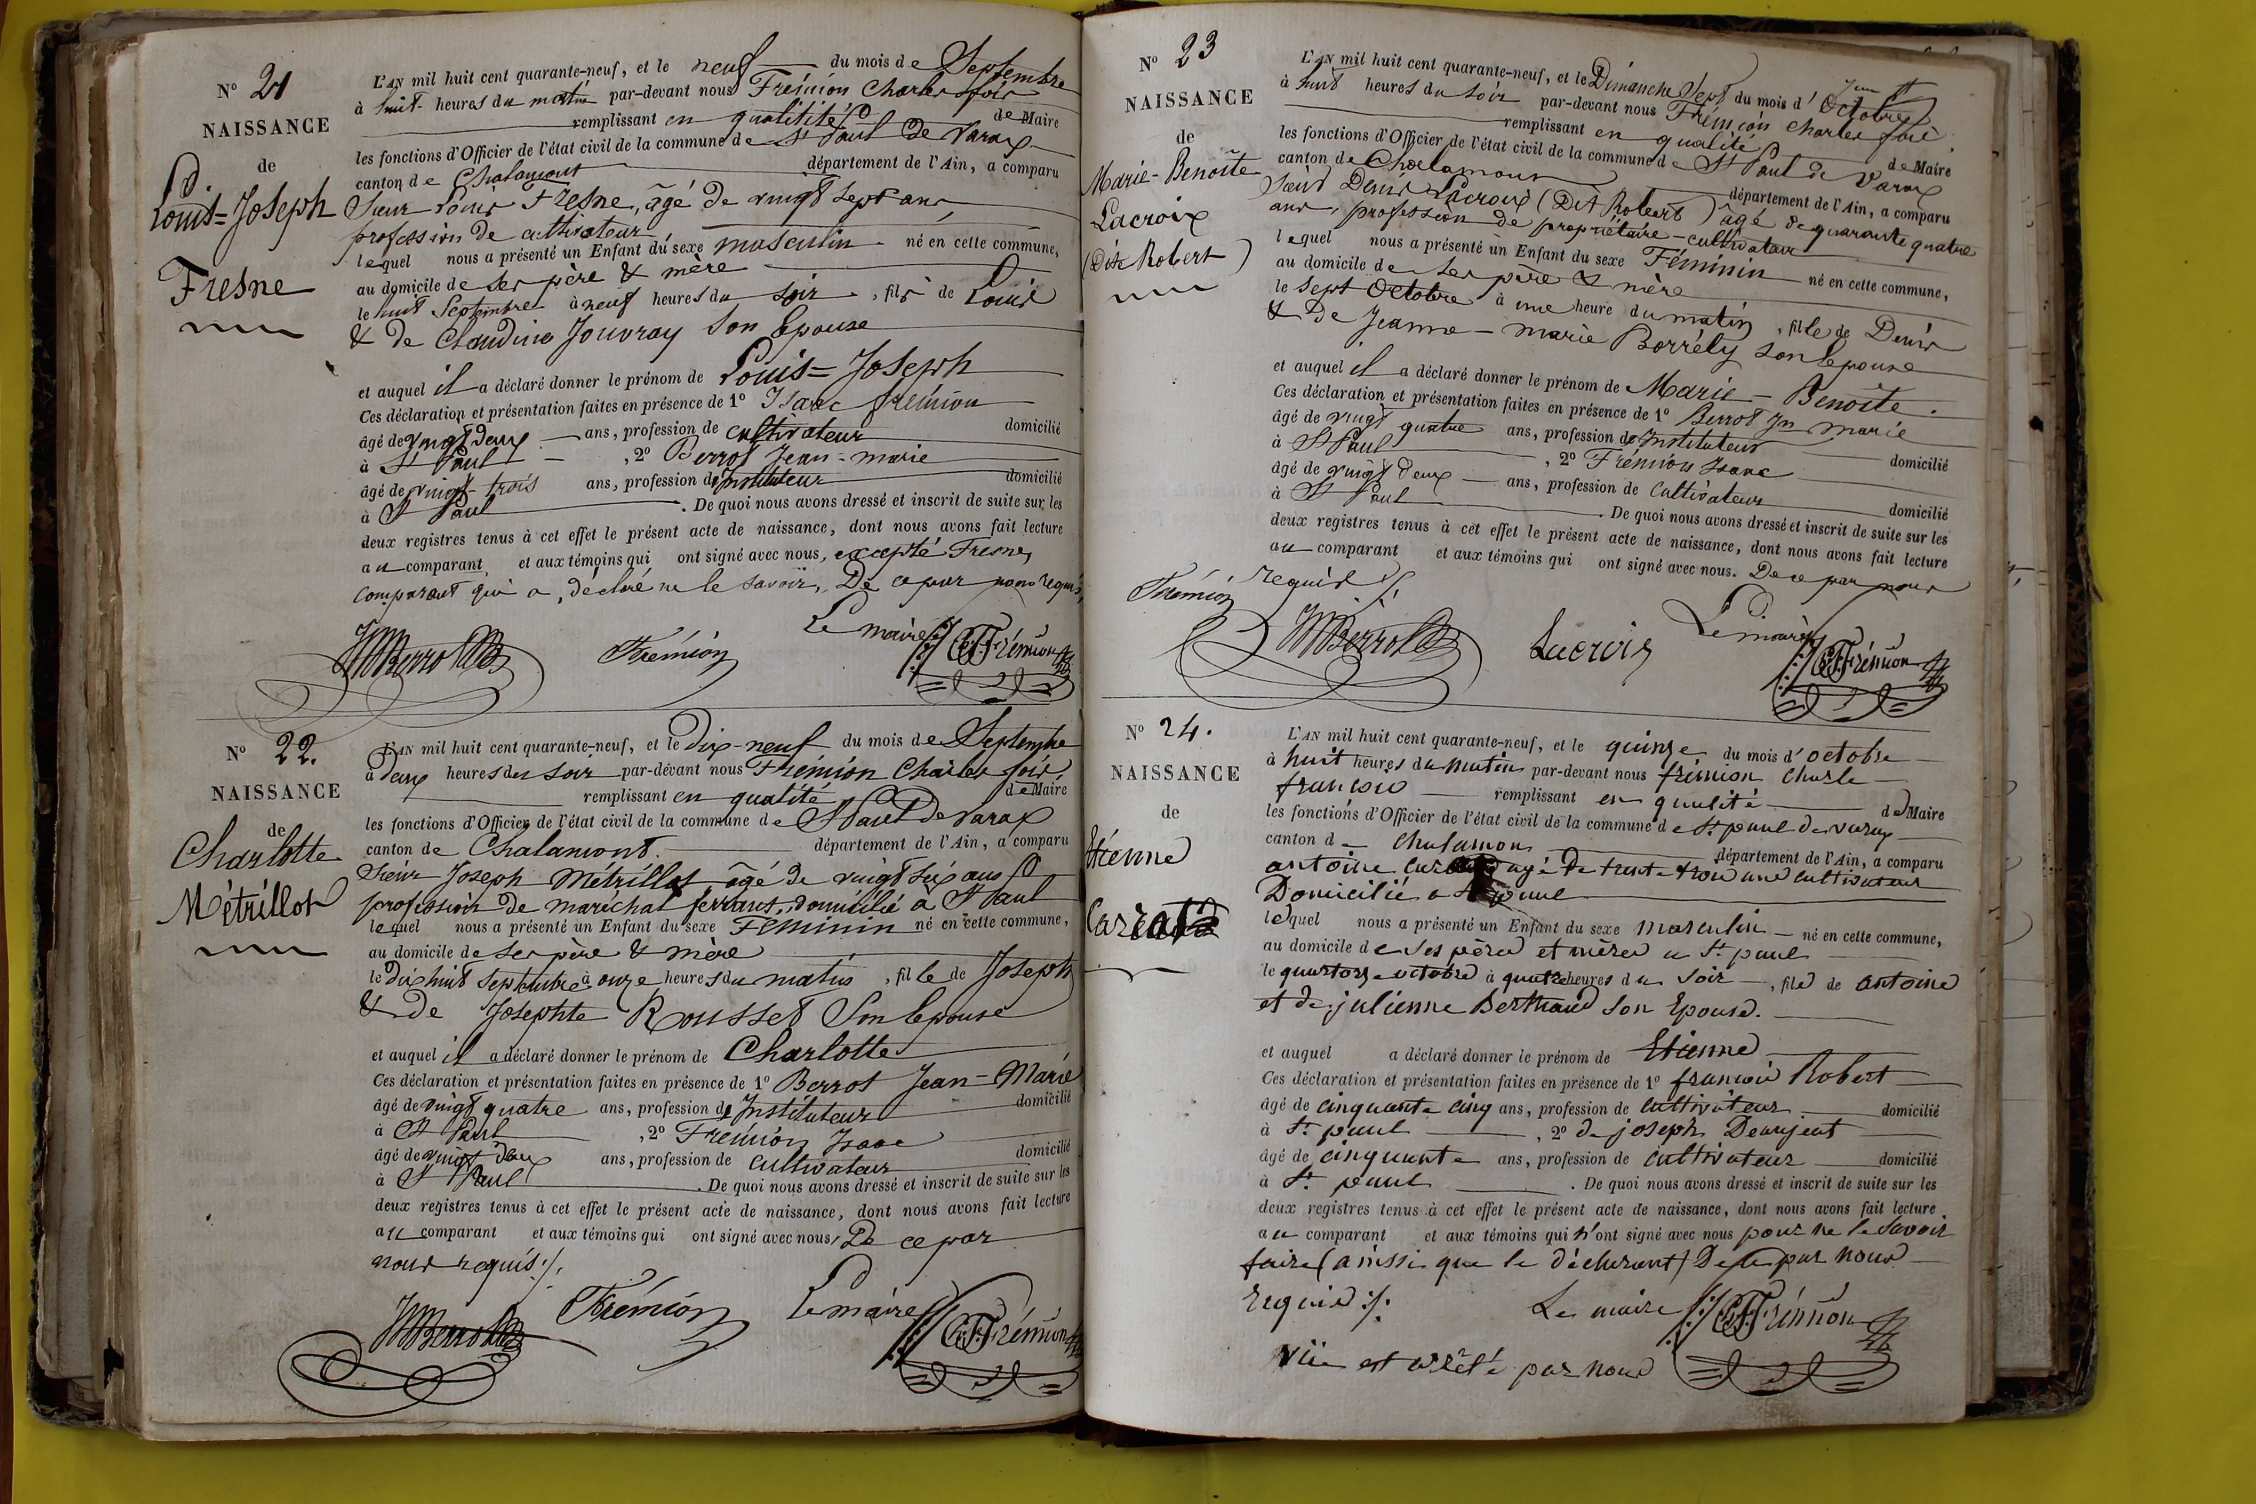 N° 21
NAISSANCE
de
Louis=Joseph
Fresne
L'AN mil huit cent quarante-neuf, et le neuf du mois de Septembre
à huit heures du matin par-devant nous Frémion Charles
remplissant en qualité de Maire
les fonctions d'Officier de l'état civil de la commune de St Paul de Varax
canton de Chalamont département de l'Ain, a comparu
Sieur Louis Fresne, âgé de vingt sept ans,
profession de cultivateur
lequel nous a présenté un Enfant du sexe masculin né en cette commune,
au domicile de ses père & mère
le huit Septembre à neuf heures du soir, fils de Louis
& de Claudine Jouvray son Epouse
et auquel il a déclaré donner le prénom de Louis=Joseph
Ces déclaration et présentation faites en présence de 1° Isaac Frémion
âgé de vingt deux ans, profession de cultivateur domicilié
à St Paul, 2° Berrot Jean-marie
âgé de vingt-trois ans, profession de Instituteur domicilié
à St Paul. De quoi nous avons dressé et inscrit de suite sur les
deux registres tenus à cet effet le présent acte de naissance, dont nous avons fait lecture
au comparant et aux témoins qui ont signé avec nous, excepté Fresne,
comparant qui a déclaré ne le savoir, De ce par nous requis
Le maire
JMBerrot Frémion Frémion
N° 22.
NAISSANCE
de
Charlotte
Métrillot
L'AN mil huit cent quarante-neuf, et le Dix-neuf du mois de Septembre
à Deux heures du soir par-devant nous Frémion Charles
remplissant en qualité de Maire
les fonctions d'Officier de l'état civil de la commune de St Paul de Varax
canton de Chalamont. département de l'Ain, a comparu
Sieur Joseph Métrillot âgé de vingt six ans
profession de maréchal ferrant, domicilié à St Paul
lequel nous a présenté un Enfant du sexe Féminin né en cette commune,
au domicile de ses père & mère
le dix huit septembre à onze heures du matin, fille de Joseph
& de Josephte Rousset Son Epouse
et auquel il a déclaré donner le prénom de Charlotte
Ces déclaration et présentation faites en présence de 1° Berrot Jean-Marie
âgé de vingt quatre ans, profession de Instituteur domicilié
à St Paul, 2° Frémion Isaac
âgé de vingt deux ans, profession de cultivateur domicilié
à St Paul. De quoi nous avons dressé et inscrit de suite sur les
deux registres tenus à cet effet le présent acte de naissance, dont nous avons fait lecture
au comparant et aux témoins qui ont signé avec nous, De ce par
nous requis./.
JMBerrot Frémion Le maire Frémion
N° 23
NAISSANCE
de
Marie-Benoîte
Lacroix
(Dite Robert)
L'AN mil huit cent quarante-neuf, et le Dimanche Sept du mois d'Octobre
à huit heures du soir par-devant nous Frémion Charles
remplissant en qualité de Maire
les fonctions d'Officier de l'état civil de la commune de St Paul de Varax
canton de Chalamont département de l'Ain, a comparu
Sieur Denis Lacroix (Dit Robert) âgé de quarante quatre
ans, profession de propriétaire-cultivateur
lequel nous a présenté un Enfant du sexe Féminin né en cette commune,
au domicile de ses père & mère
le sept Octobre à une heure du matin, fille de Denis
& de Jeanne-marie Borrély son Epouse
et auquel il a déclaré donner le prénom de Marie-Benoîte.
Ces déclaration et présentation faites en présence de 1° Berrot Jn marie
âgé de vingt quatre ans, profession de Instituteur domicilié
à St Paul, 2° Frémion Isaac
âgé de vingt deux ans, profession de cultivateur domicilié
à St Paul. De quoi nous avons dressé et inscrit de suite sur les
deux registres tenus à cet effet le présent acte de naissance, dont nous avons fait lecture
au comparant et aux témoins qui ont signé avec nous. De ce par nous
requis /.
Frémion JMBerrot Lacroix Le maire Frémion
N° 24.
NAISSANCE
de
Etienne
Carrat
L'AN mil huit cent quarante-neuf, et le quinze du mois d'octobre
à huit heures du matin par-devant nous frémion Charle
francois remplissant en qualité de Maire
les fonctions d'Officier de l'état civil de la commune de St paul de varax
canton d Chalamon département de l'Ain, a comparu
antoine agé de trente trois ans cultivateur
Domicilié a St paul
lequel nous a présenté un Enfant du sexe masculin né en cette commune,
au domicile de ses pères et mères a St paul
le quatorze octobre à quatre heures du soir, fils de antoine
et de julienne Berthaud son Epouse.
et auquel a déclaré donner le prénom de Etienne
Ces déclaration et présentation faites en présence de 1° francois Robert
âgé de cinquante cinq ans, profession de cultivateur domicilié
à St paul, 2° de joseph
âgé de cinquante ans, profession de cultivateur domicilié
à St paul. De quoi nous avons dressé et inscrit de suite sur les
deux registres tenus à cet effet le présent acte de naissance, dont nous avons fait lecture
au comparant et aux témoins qui n'ont signé avec nous pour ne le savoir
faire (ainssi que le déclarant) De ce par nous
requis ./. Le maire Frémion
vüe est arrêté par nous